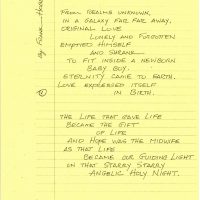 From realms unknown,
in a galaxy far far away,
original love
lonely and forgotten
emptied himself
and shrank
to fit inside a newborn
baby boy.
Eternity came to earth.
Love expressed itself
in birth.
The life that gave life
became the gift
of life
and hope was the midwife
as that life
became our guiding light
on that starry starry
angelic holy night.
by Frank